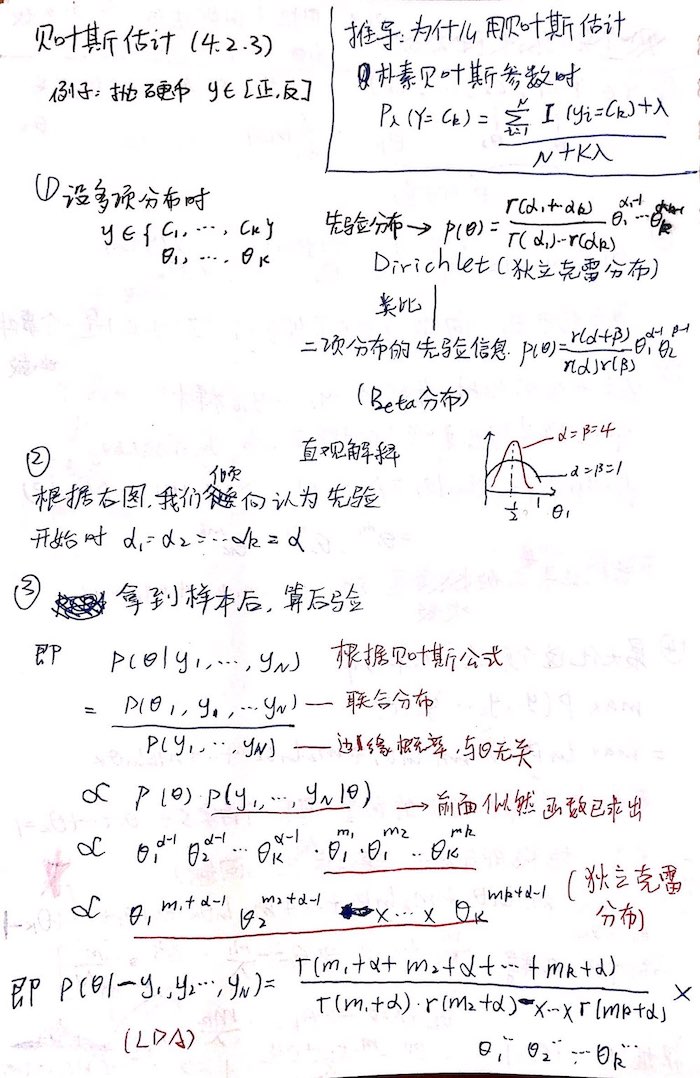 贝叶斯估计 (4.2.3)
例子: 抛硬币 y∈[正,反]
推导: 为什么用贝叶斯估计
朴素贝叶斯参数时
Pλ(Y=Ck) = \frac{\sum_{i=1}^{N} I(yi=Ck)+λ}{N+Kλ}
① 设多项分布时
y∈{C1, ..., Ck}
θ1, ..., θk
先验分布 → P(θ) = \frac{Γ(α1+..αk)}{Γ(α1)...Γ(αk)} θ1^{α1-1}...θk^{αk-1}
Dirichlet (狄立克雷分布)
类比
二项分布的先验信息. P(θ) = \frac{Γ(α+β)}{Γ(α)Γ(β)} θ1^{α-1} θ2^{β-1}
(Beta分布)
② 直观解释
α=β=4
α=β=1
1/2 1 θ1
根据右图,我们倾向认为先验
开始时 α1=α2=...αk=α
③ 拿到样本后, 算后验
即 P(θ|y1, ..., yN) 根据贝叶斯公式
= \frac{P(θ1, y1, ...yN)}{P(y1, ..., yN)} — 联合分布
— 边缘概率,与θ无关
∝ P(θ)·P(y1, ..., yN|θ) → 前面似然函数已求出
∝ θ1^{α-1} θ2^{α-1} ... θK^{α-1} · θ1^{m1}·θ1^{m2}...θK^{mk}
∝ θ1^{m1+α-1} θ2^{m2+α-1} x...x θK^{mk+α-1} (狄立克雷
分布)
即 P(θ|-y1,y2...,yN) = \frac{Γ(m1+α+m2+α+...+mk+α)}{Γ(m1+α)·Γ(m2+α) x...x Γ(mk+α)} ×
(LDA)
θ1^{...} θ2^{...} ... θk^{...}